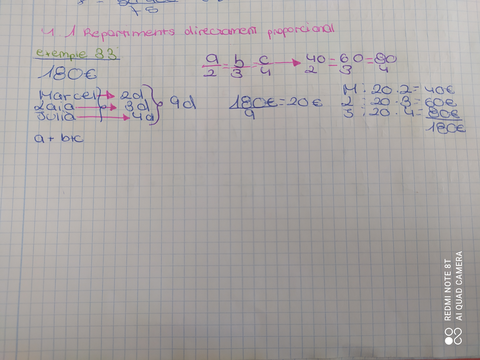 4.1 Repartiments directament proporcional
exemple 33
180€
Marcel → 2d
Laia → 3d
Julia → 4d
9d
a+b+c
a/2 = b/3 = c/4 → 40/2 = 60/3 = 80/4
180€/9 = 20€
M: 20·2 = 40€
L: 20·3 = 60€
J: 20·4 = 80€
180€
REDMI NOTE 8T
AI QUAD CAMERA